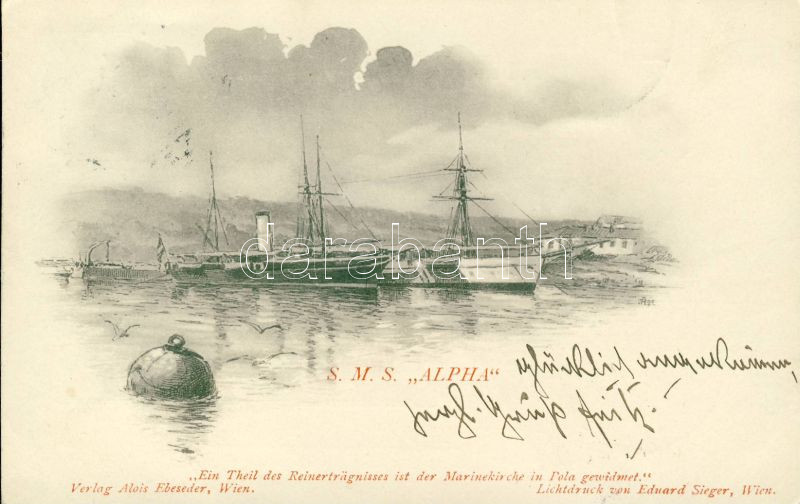 darabanth
S. M. S. „ALPHA“
glücklich angekommen,
herzl. Gruß Fritz.
„Ein Theil des Reinerträgnisses ist der Marinekirche in Pola gewidmet.“
Verlag Alois Ebeseder, Wien. Lichtdruck von Eduard Sieger, Wien.